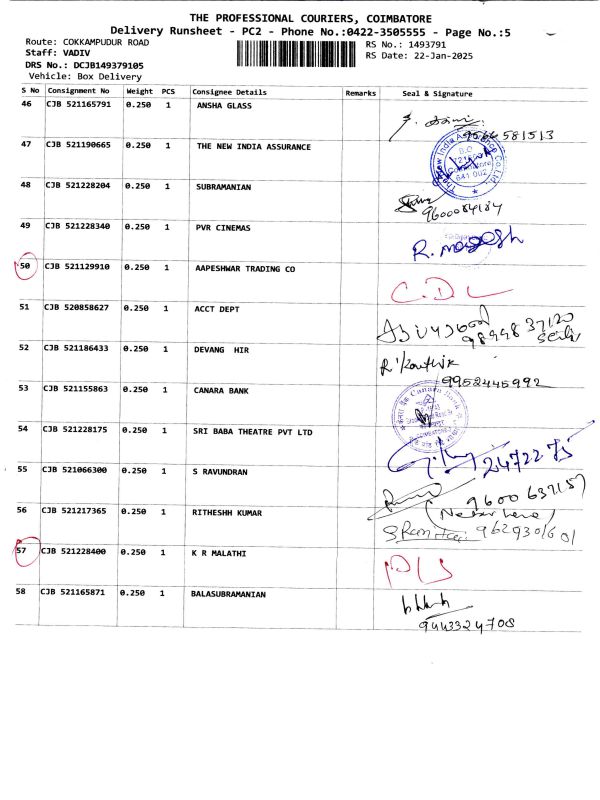 THE PROFESSIONAL COURIERS, COIMBATORE
Delivery Runsheet - PC2 - Phone No.:0422-3505555 - Page No.:5
Route: COKKAMPUDUR ROAD
RS No.: 1493791
Staff: VADIV
RS Date: 22-Jan-2025
DRS No.: DCJB149379105
Vehicle: Box Delivery
S No Consignment No Weight PCS Consignee Details Remarks Seal & Signature
46 CJB 521165791 0.250 1 ANSHA GLASS
581513
47 CJB 521190665 0.250 1 THE NEW INDIA ASSURANCE
48 CJB 521228204 0.250 1 SUBRAMANIAN
9600084184
49 CJB 521228340 0.250 1 PVR CINEMAS
50 CJB 521129910 0.250 1 AAPESHWAR TRADING CO
C.D.L
51 CJB 520858627 0.250 1 ACCT DEPT
98998 37120
52 CJB 521186433 0.250 1 DEVANG HIR
9952445992
53 CJB 521155863 0.250 1 CANARA BANK
Canara Bank
54 CJB 521228175 0.250 1 SRI BABA THEATRE PVT LTD
2472275
55 CJB 521066300 0.250 1 S RAVUNDRAN
9600637157
56 CJB 521217365 0.250 1 RITHESHH KUMAR
9629301601
57 CJB 521228400 0.250 1 K R MALATHI
58 CJB 521165871 0.250 1 BALASUBRAMANIAN
9443324708